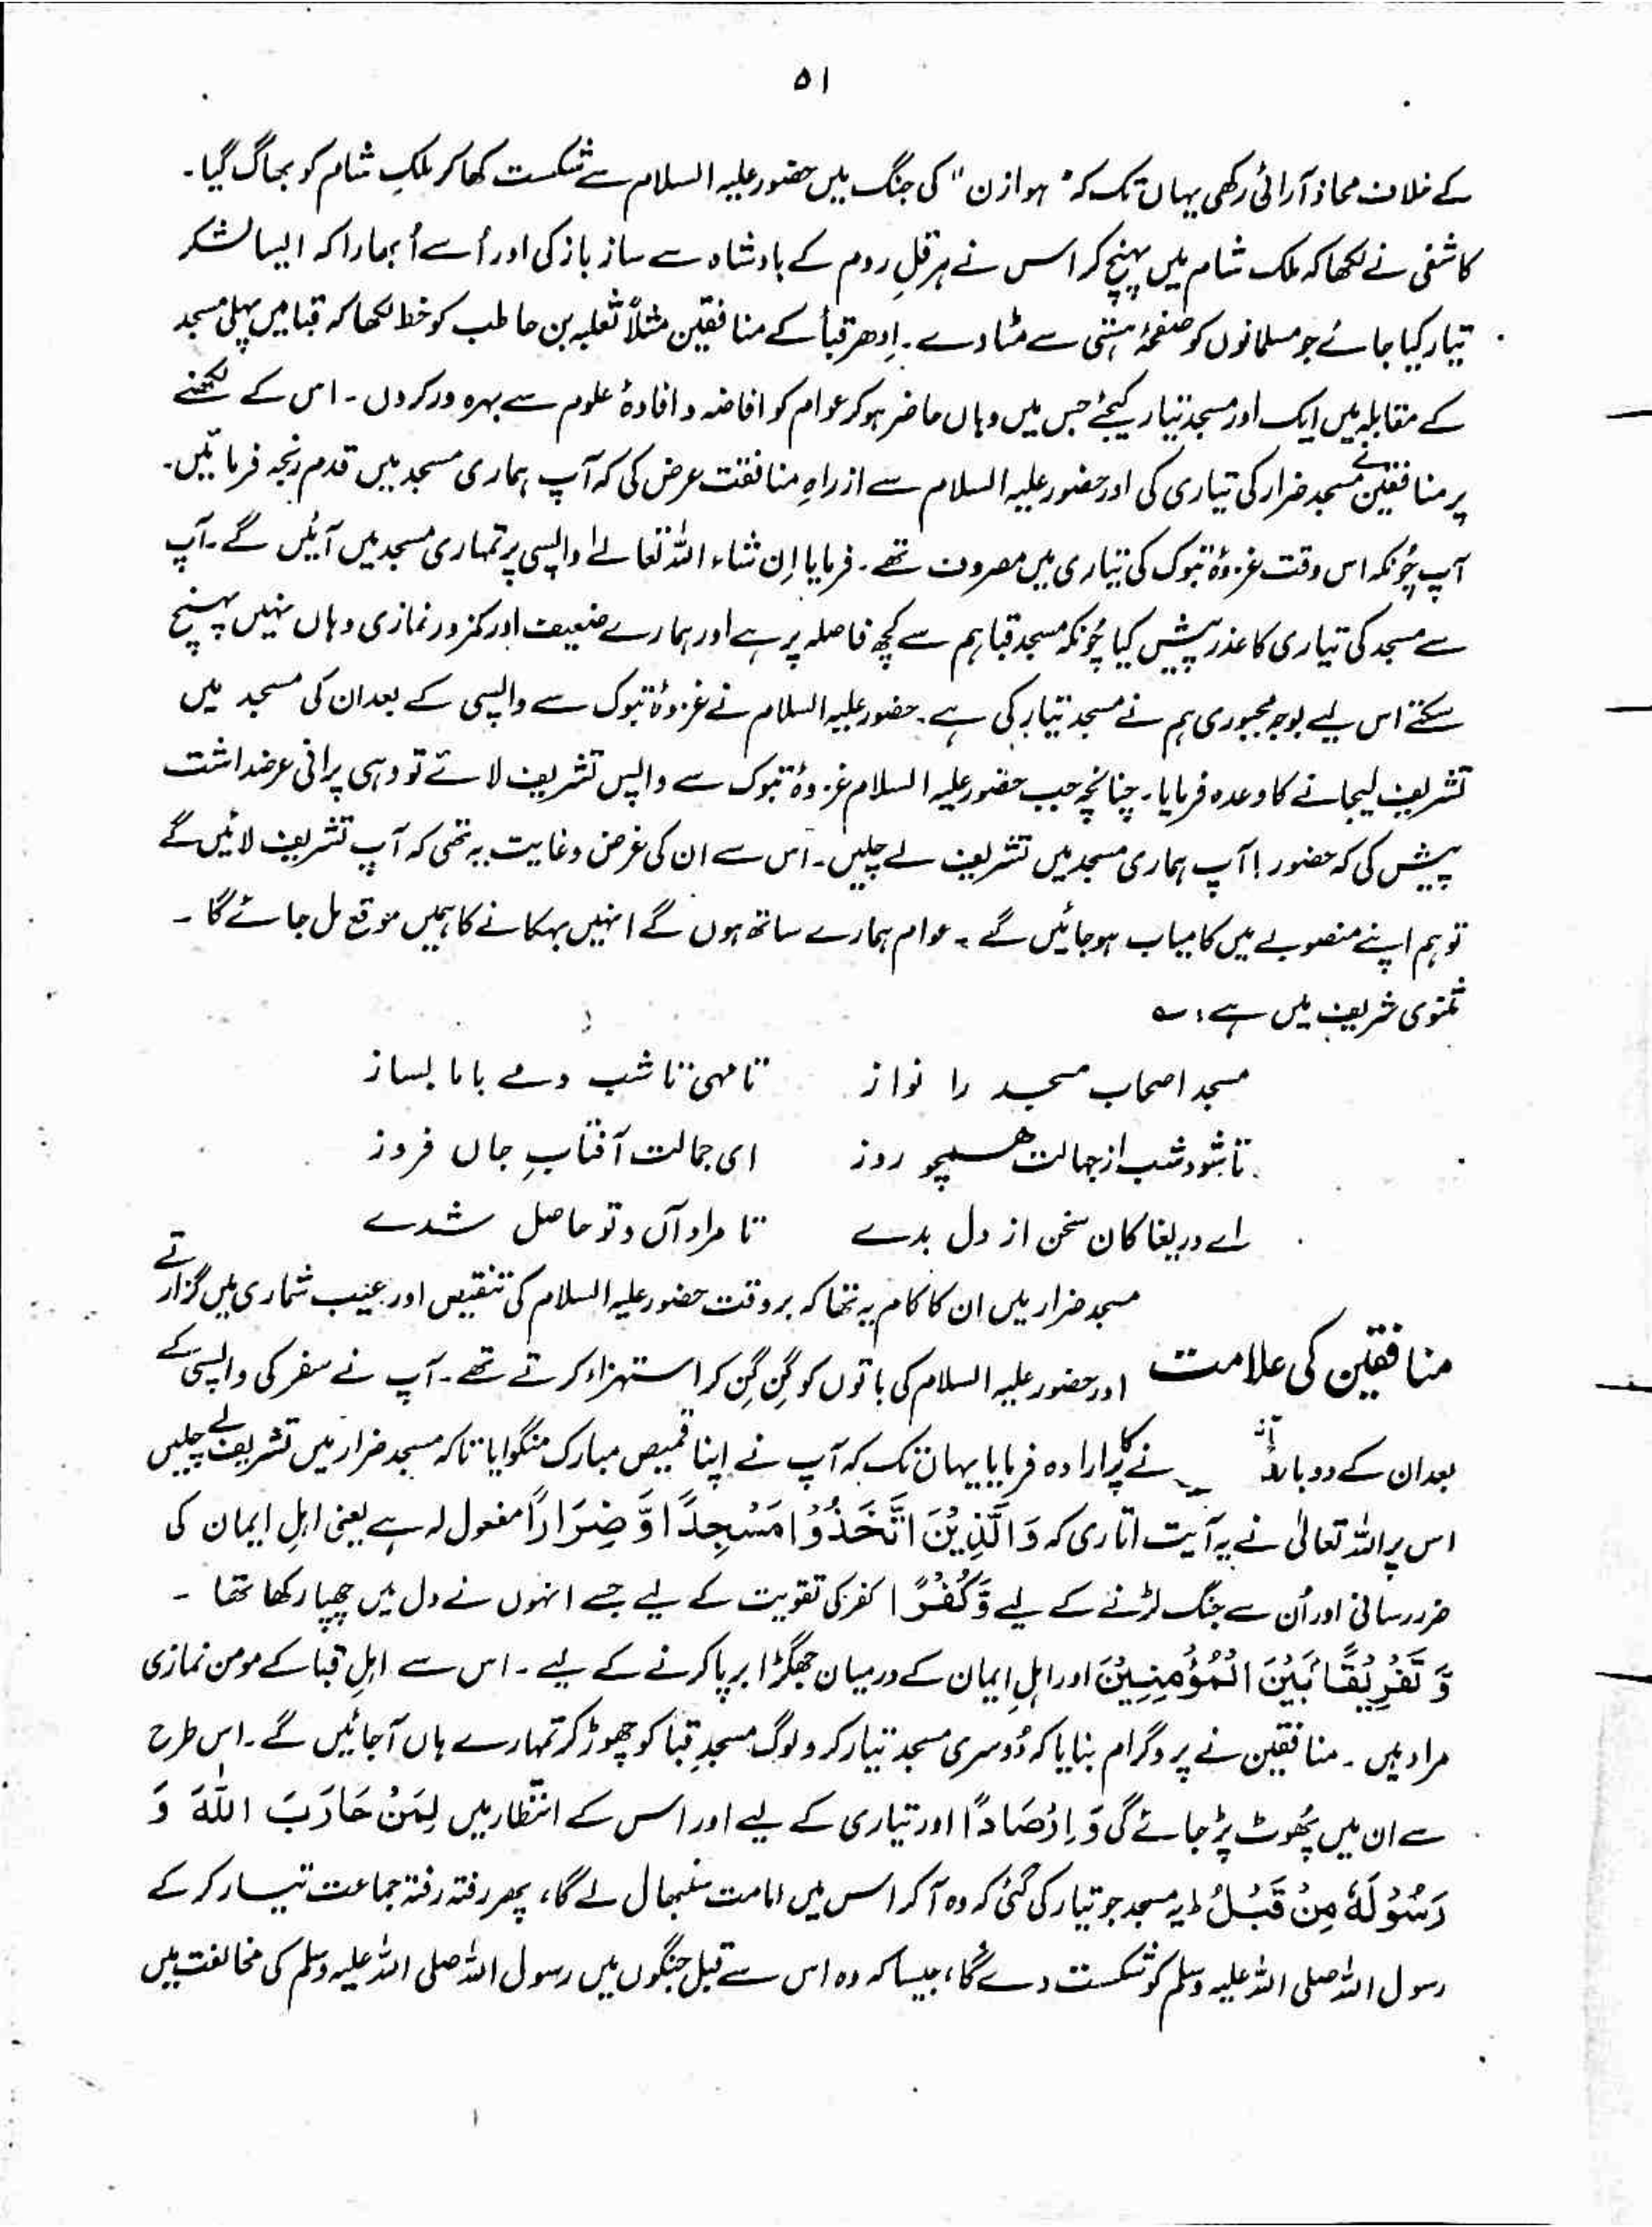 ۵۱
کے خلاف محاذ آرائی رکھی یہاں تک کہ "ہوازن" کی جنگ میں حضور علیہ السلام سے شکست کھا کر ملکِ شام کو بھاگ گیا۔
کاشفی نے لکھا کہ ملک شام میں پہنچ کر اس نے ہرقلِ روم کے بادشاہ سے ساز باز کی اور اُسے اُبھارا کہ ایسا لشکر
تیار کیا جائے جو مسلمانوں کو صفحۂ ہستی سے مٹا دے۔ اِدھر قبأ کے منافقین مثلاً ثعلبہ بن حاطب کو خط لکھا کہ قبا میں پہلی مسجد
کے مقابلہ میں ایک اور مسجد تیار کیجئے جس میں وہاں حاضر ہو کر عوام کو افاضہ و افادۂ علوم سے بہرہ ور کر دوں۔ اس کے لکھنے
پر منافقین نے مسجد ضرار کی تیاری کی اور حضور علیہ السلام سے از راہِ منافقت عرض کی کہ آپ ہماری مسجد میں قدم رنجہ فرمائیں۔
آپ چُونکہ اس وقت غزوۂ تبوک کی تیاری میں مصروف تھے۔ فرمایا اِن شاء اللہ تعالےٰ واپسی پر تمہاری مسجد میں آئیں گے۔ آپ
سے مسجد کی تیاری کا عذر پیش کیا چُونکہ مسجد قبا ہم سے کچھ فاصلہ پر ہے اور ہمارے ضعیف اور کمزور نمازی وہاں نہیں پہنچ
سکتے اس لیے بوجہ مجبوری ہم نے مسجد تیار کی ہے۔ حضور علیہ السلام نے غزوۂ تبوک سے واپسی کے بعد ان کی مسجد میں
تشریف لیجانے کا وعدہ فرمایا۔ چنانچہ جب حضور علیہ السلام غزوۂ تبوک سے واپس تشریف لائے تو وہی پرانی عرضداشت
پیش کی کہ حضور! آپ ہماری مسجد میں تشریف لے چلیں۔ اس سے ان کی غرض و غایت یہ تھی کہ آپ تشریف لائیں گے
تو ہم اپنے منصوبے میں کامیاب ہو جائیں گے۔ عوام ہمارے ساتھ ہوں گے انہیں بہکانے کا ہمیں موقع مل جائے گا۔
مثنوی شریف میں ہے: ؎
مسجد اصحاب مسجد را نواز تا مہی تا شب دمے باما بساز
تا شود شب از جمالت ہمچو روز ای جمالت آفتابِ جاں فروز
اے دریغا کان سخن از دل بدے تا مراد آں دتو حاصل شدے
مسجد ضرار میں ان کا کام یہ تھا کہ ہر وقت حضور علیہ السلام کی تنقیص اور عیب شماری میں گزارتے
منافقین کی علامت اور حضور علیہ السلام کی باتوں کو گِن گِن کر استہزاء کرتے تھے۔ آپ نے سفر کی واپسی کے
بعد ان کے دوبارہ آنے کا ارادہ فرمایا یہاں تک کہ آپ نے اپنا قمیص مبارک منگوایا تاکہ مسجد ضرار میں تشریف لے چلیں
اس پر اللہ تعالیٰ نے یہ آیت اتاری کہ وَالَّذِیْنَ اتَّخَذُوْا مَسْجِدًا وَّ ضِرَارًا مفعول لہ ہے یعنی اہلِ ایمان کی
ضرر رسانی اور اُن سے جنگ لڑنے کے لیے وَّكُفْرًا کفر کی تقویت کے لیے جسے انہوں نے دل میں چھپا رکھا تھا۔
وَّ تَفْرِیْقًا بَیْنَ الْمُؤْمِنِیْنَ اور اہلِ ایمان کے درمیان جھگڑا برپا کرنے کے لیے۔ اس سے اہلِ قبا کے مومن نمازی
مراد ہیں۔ منافقین نے پروگرام بنایا کہ دُوسری مسجد تیار کرو لوگ مسجدِ قبا کو چھوڑ کر تمہارے ہاں آجائیں گے۔ اس طرح
سے ان میں پھُوٹ پڑ جائے گی وَ اِرْصَادًا اور تیاری کے لیے اور اس کے انتظار میں لِمَنْ حَارَبَ اللّٰهَ وَ
رَسُوْلَهٗ مِنْ قَبْلُ ؕ یہ مسجد جو تیار کی گئی کہ وہ آکر اس میں امامت سنبھال لے گا، پھر رفتہ رفتہ جماعت تیار کر کے
رسول اللہ صلی اللہ علیہ وسلم کو شکست دے گا، جیسا کہ وہ اس سے قبل جنگوں میں رسول اللہ صلی اللہ علیہ وسلم کی مخالفت میں